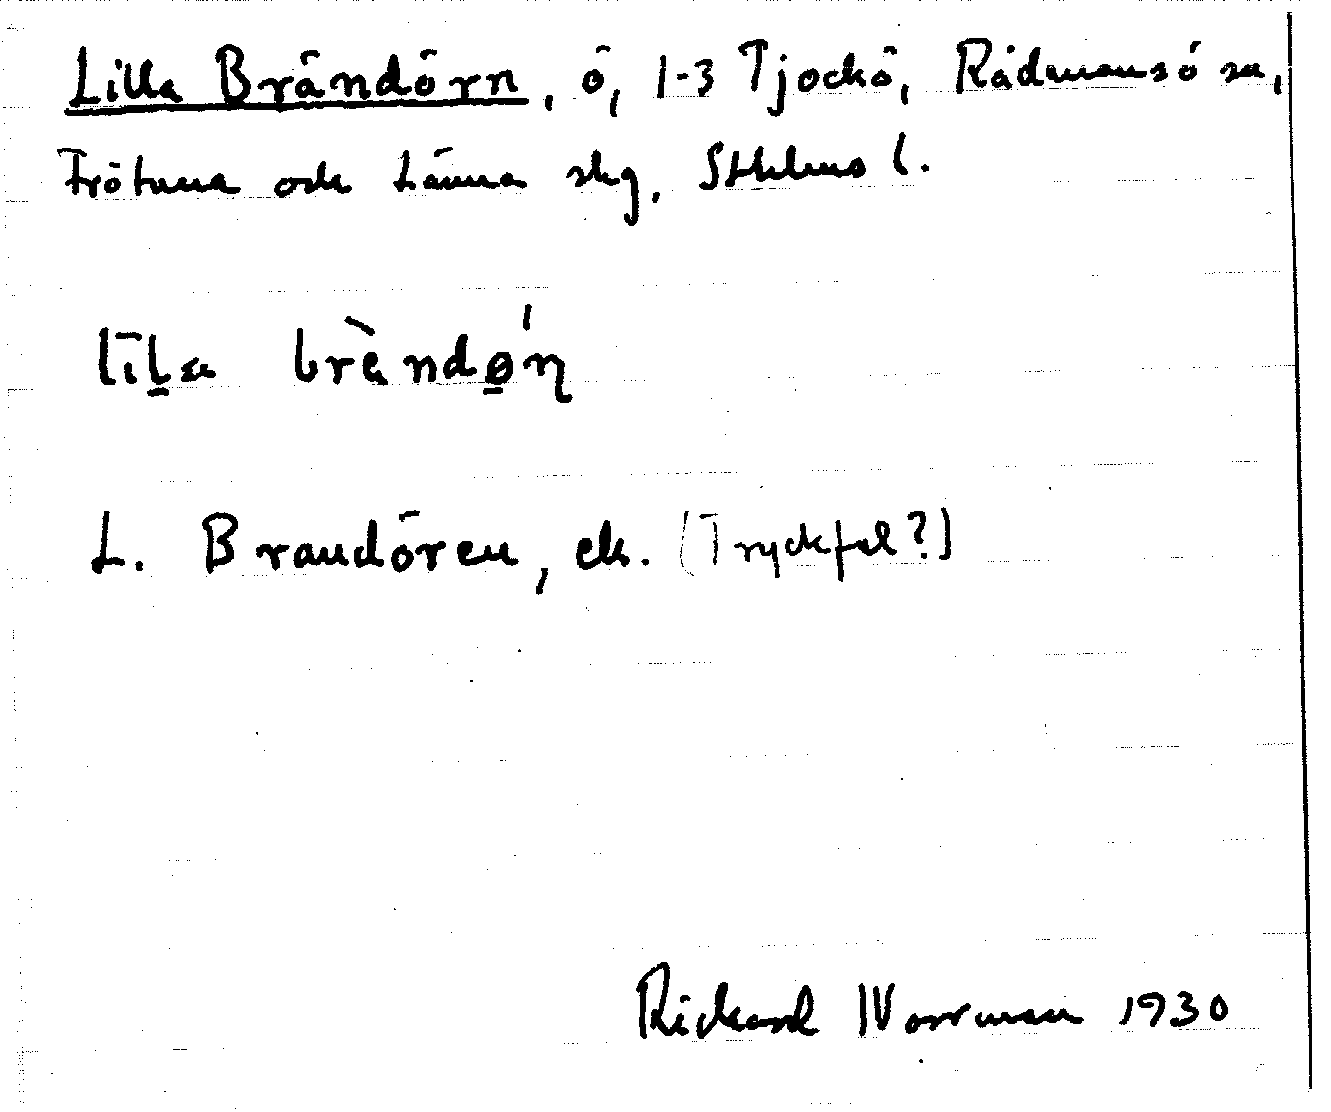 Lilla Brändörn, ö, 1-3 Tjockö, Rådmansö sn,
Frötuna och Länna skg, Sthlms l.
līl̠a brèndø̠´n̡
L. Brandören, ek. (Tryckfel?)
Rickard Norrman 1930